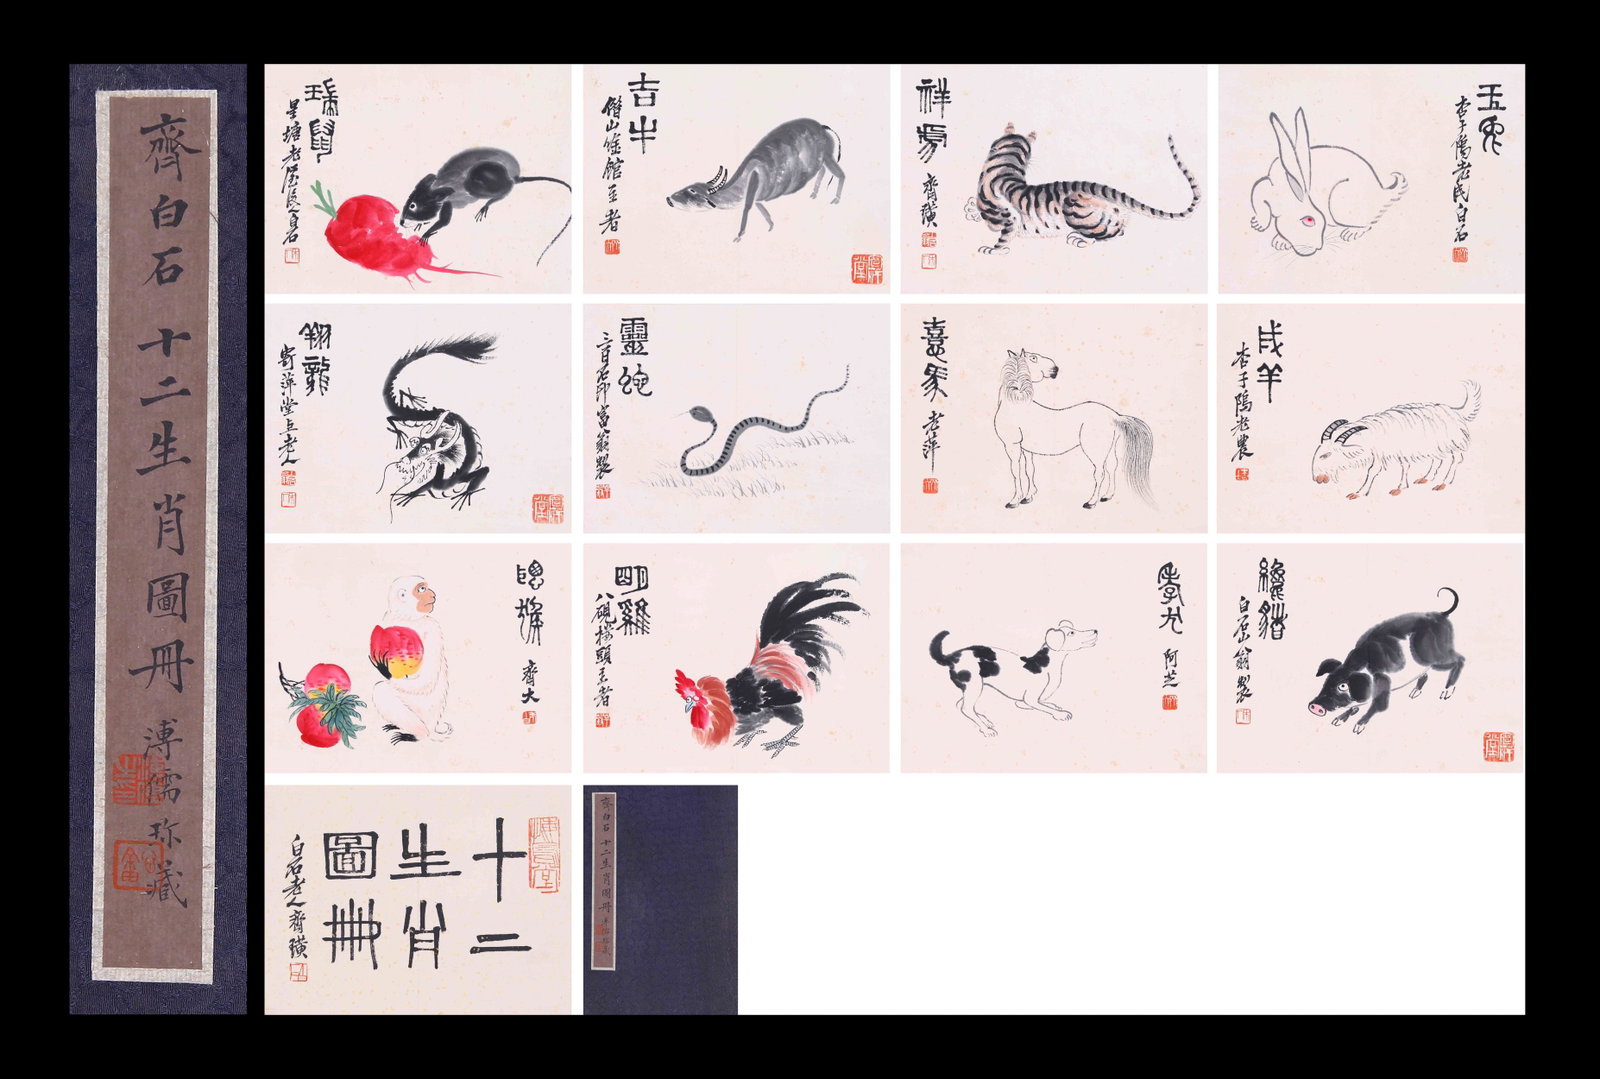 齊白石十二生肖圖冊
溥儒珍藏
瑞鼠
星塘老屋後人白石
吉牛
借山吟館主者
祥虎
齊璜
玉兔
杏子隖老民白石
翔龍
寄萍堂上老人
靈蛇
三百石印富翁製
喜馬
老萍
吉羊
杏子隖老農
齊大
鳴雞
八硯樓頭主者
阿芝
豬
白石山翁製
十二
生肖
圖冊
白石老人齊璜
齊白石十二生肖圖冊